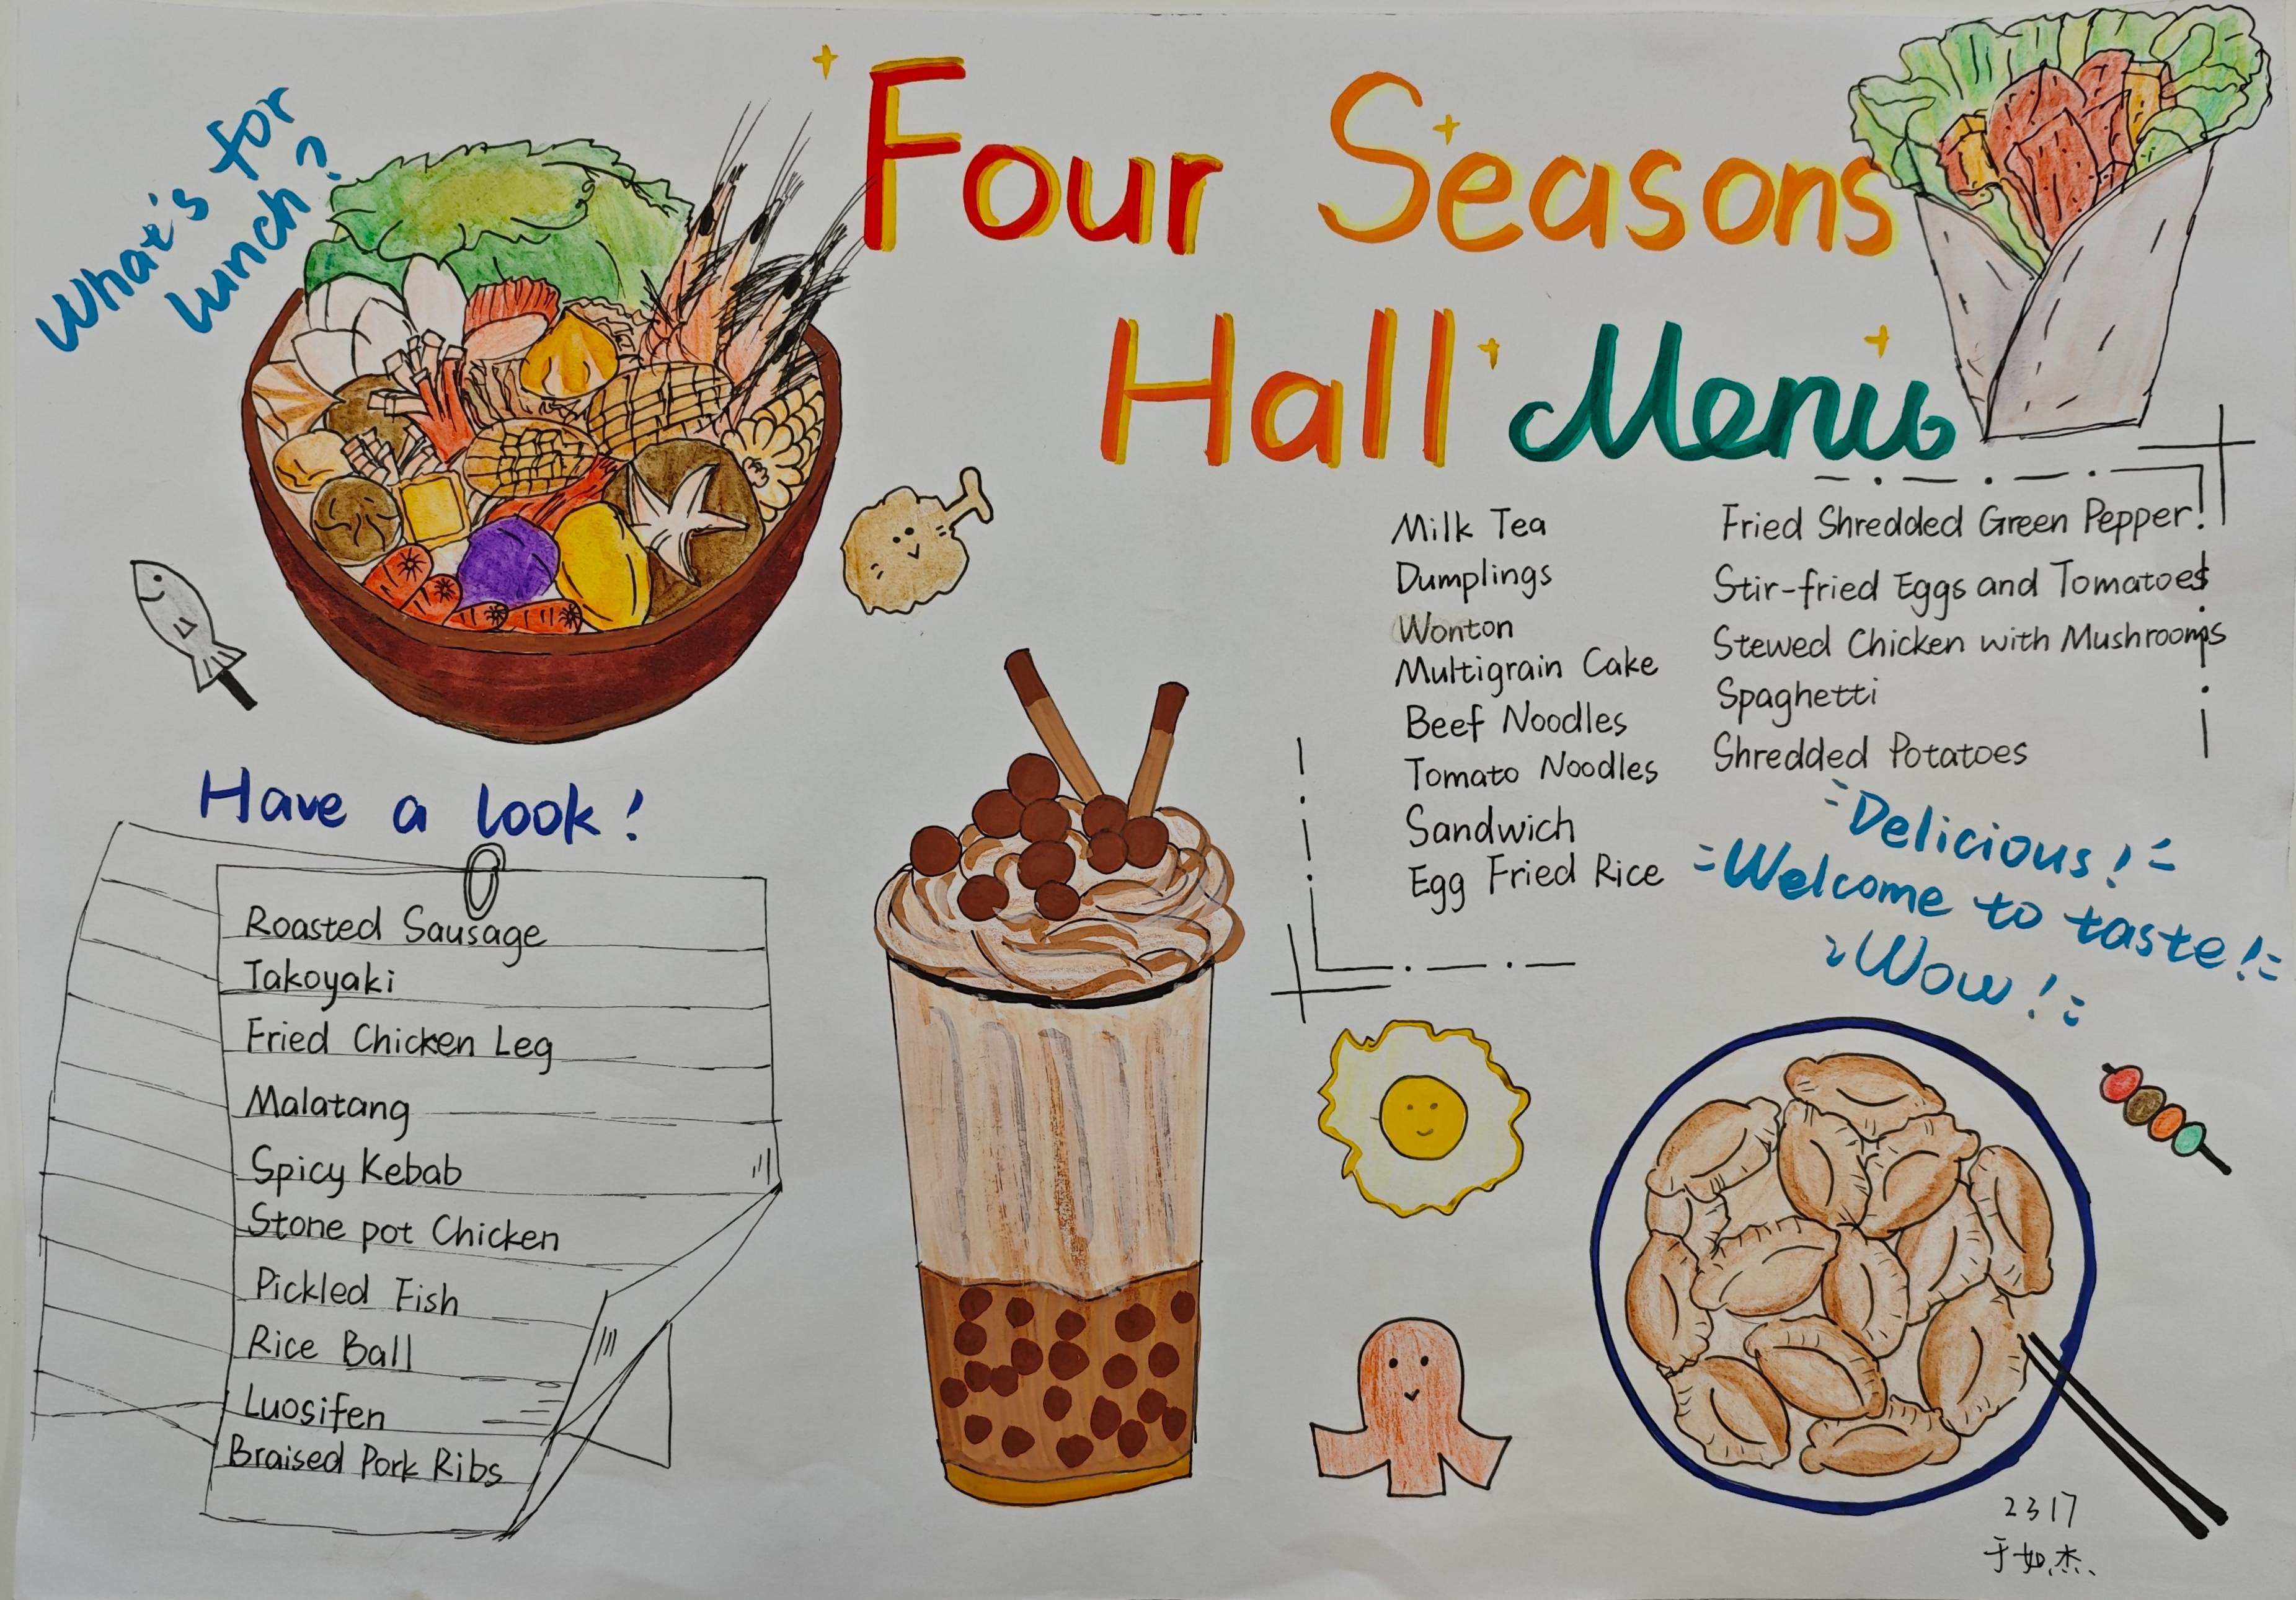 What's for
lunch?
Four Seasons
Hall Menu
Milk Tea
Dumplings
Wonton
Multigrain Cake
Beef Noodles
Tomato Noodles
Sandwich
Egg Fried Rice
Fried Shredded Green Pepper
Stir-fried Eggs and Tomatoes
Stewed Chicken with Mushrooms
Spaghetti
Shredded Potatoes
Delicious!
Welcome to taste!
Wow!
Have a look!
Roasted Sausage
Takoyaki
Fried Chicken Leg
Malatang
Spicy Kebab
Stone pot Chicken
Pickled Fish
Rice Ball
Luosifen
Braised Pork Ribs
2317
于如杰